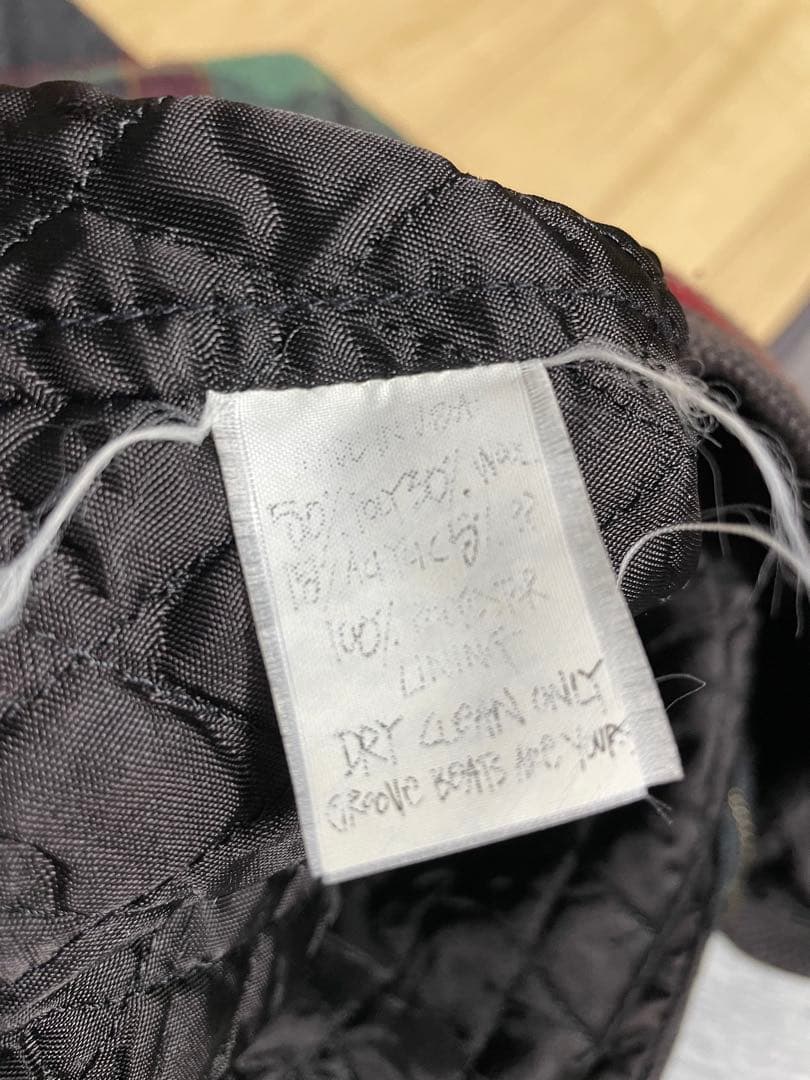 MADE IN USA
50% POLY 30% WOOL
15% ACRYLIC 5% ??
100% POLYESTER
LINING
DRY CLEAN ONLY
GROOVE BEATS ARE YUMMY